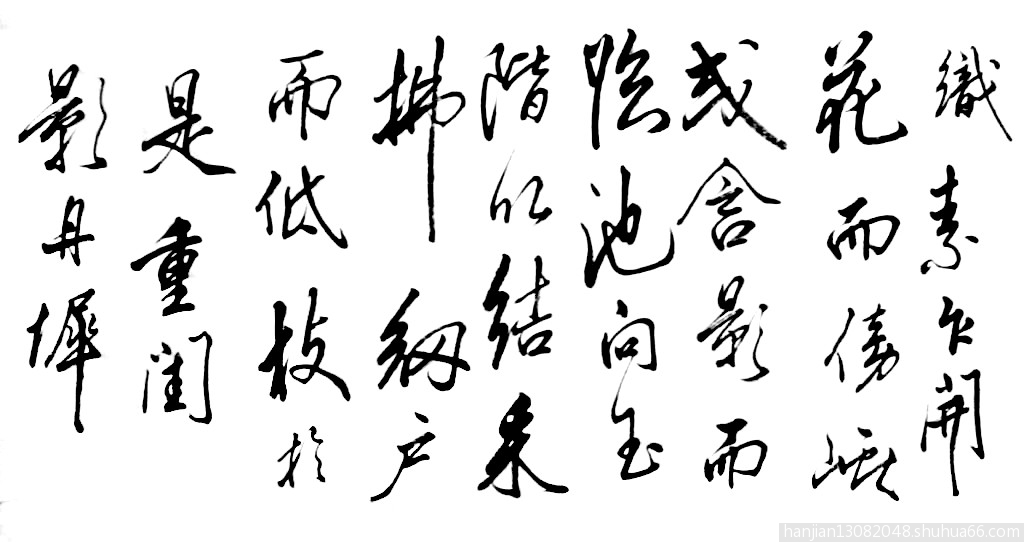 織素乍開
花而傍巘
或含影而
臨池向玉
階以結采
拂網户
而低枝於
是重閨
影丹墀
hanjian13082048.shuhua66.com